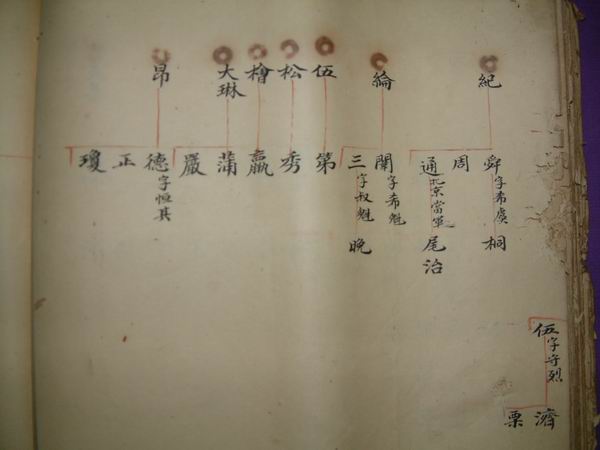 紀
綸
伍
松
檜
大琳
昂
舜字希虞
桐
周
通北京當軍
尾治
字希魁
三字叔魁
晚
第
秀
蒲
嚴
德字恒其
正
瓊
伍字守烈
濟
栗